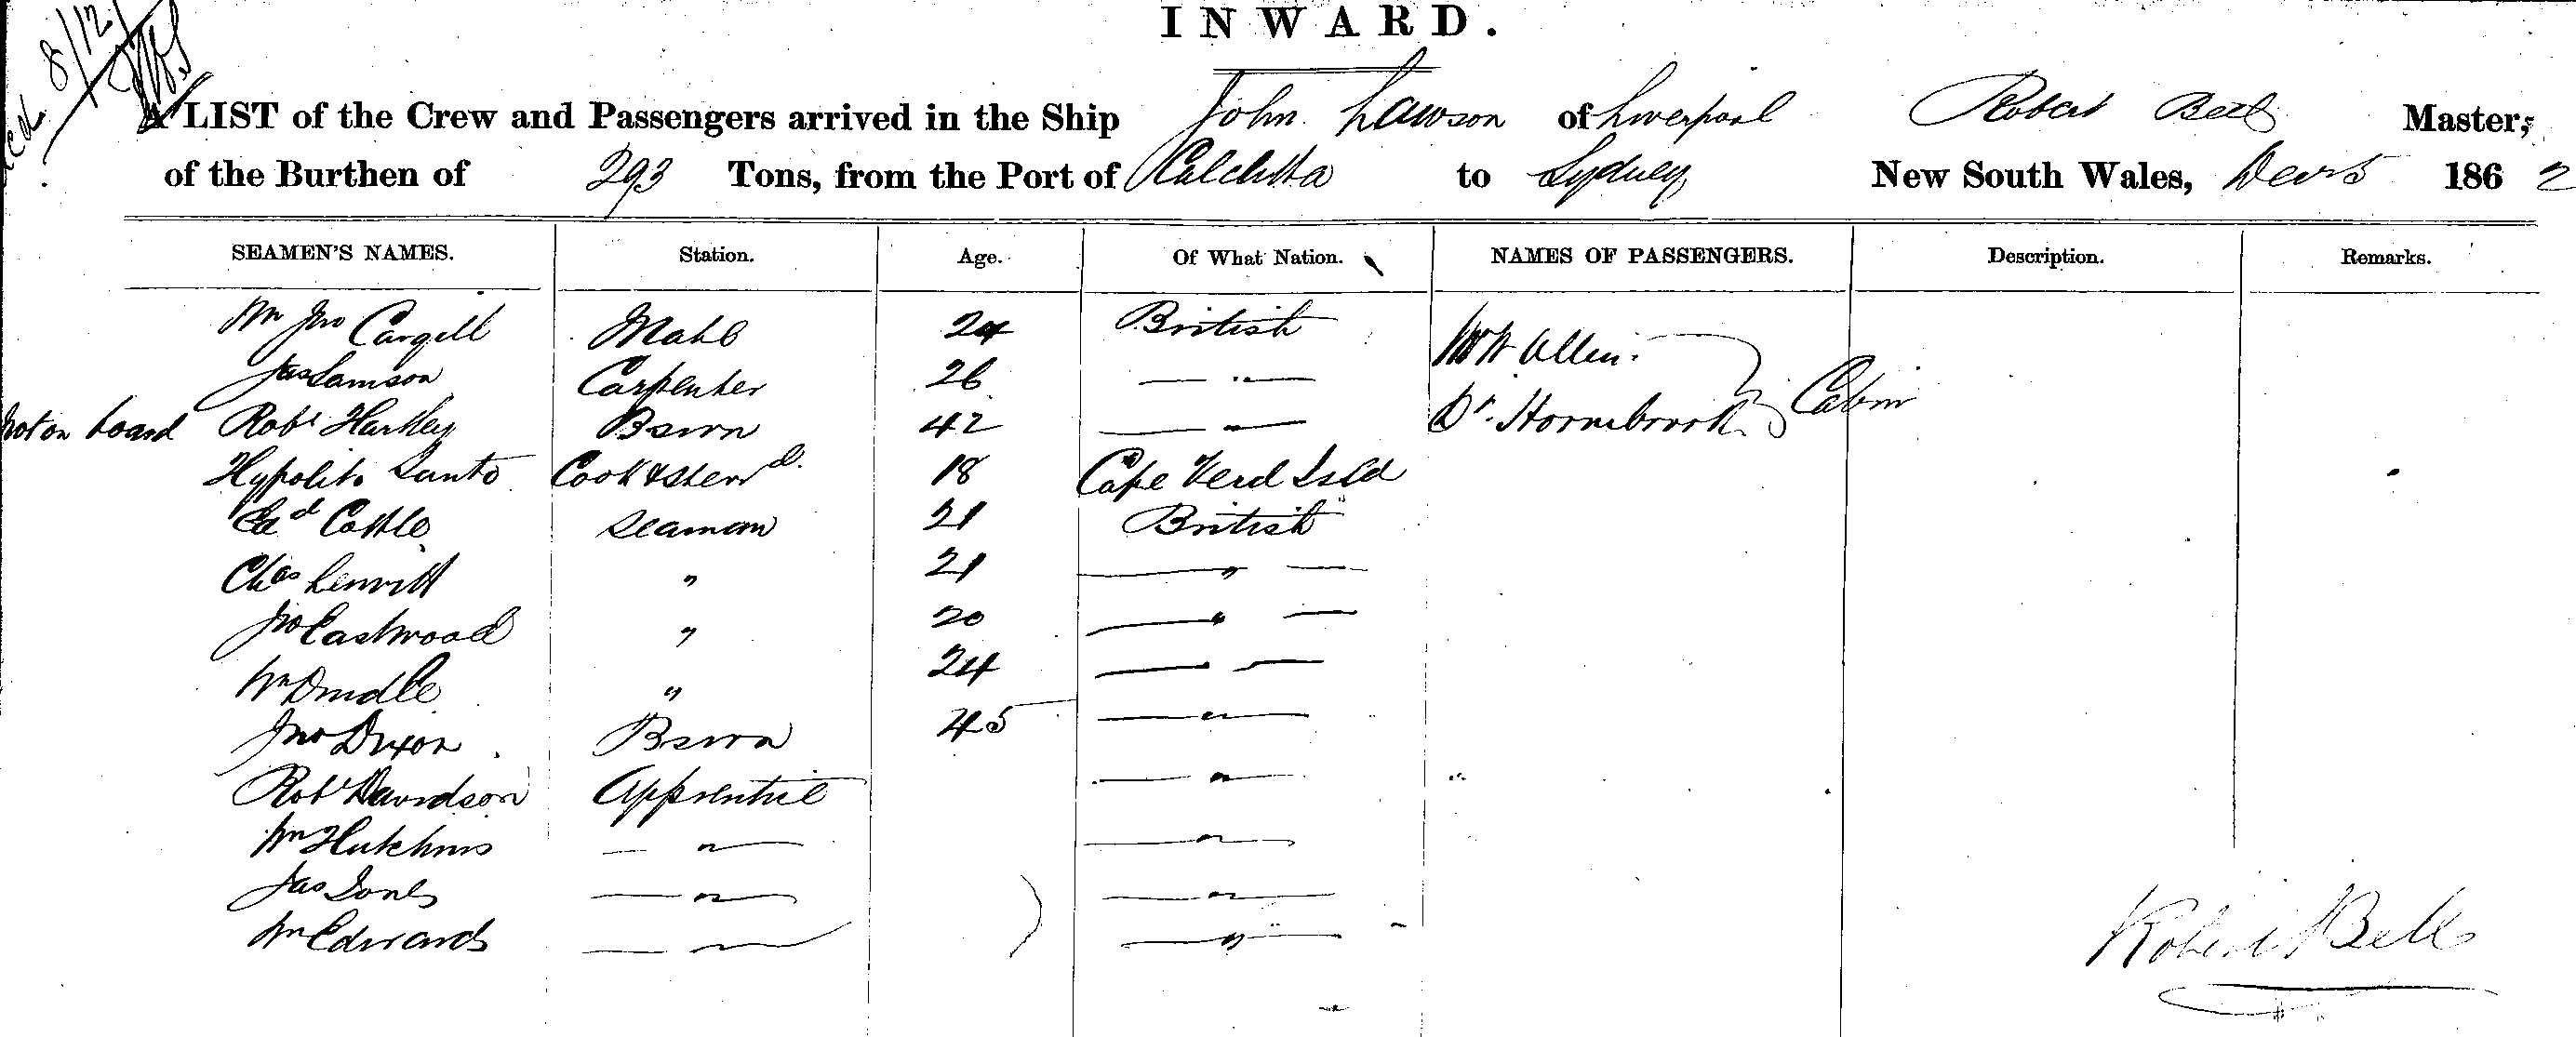 INWARD.
8/12
A LIST of the Crew and Passengers arrived in the Ship John Lawson of Liverpool Robert Bell Master,
of the Burthen of 293 Tons, from the Port of Calcutta to Sydney New South Wales, Decr 5 1862
SEAMEN'S NAMES. Station. Age. Of What Nation. NAMES OF PASSENGERS. Description. Remarks.
Wm Jno Cargill Mate 24 British Allen
Jas Lamson Carpenter 26 — " —
Not on board Robt Hartley Bswn 42 — " — Dr. Hornibrook Cabin
Hypolito Santo Cook & Stewd. 18 Cape Verd Isld
Ed Cottle Seaman 21 British
Chas " 21 — " —
Jno Eastwood " 20 — " —
Wm " 24 — " —
Jno Dixon Bswn 45 — " —
Robt Davidson Apprentice — " —
Wm Hutchins — " — — " —
Jas Jones — " — — " —
Wm Edwards — " — — " —
Robert Bell